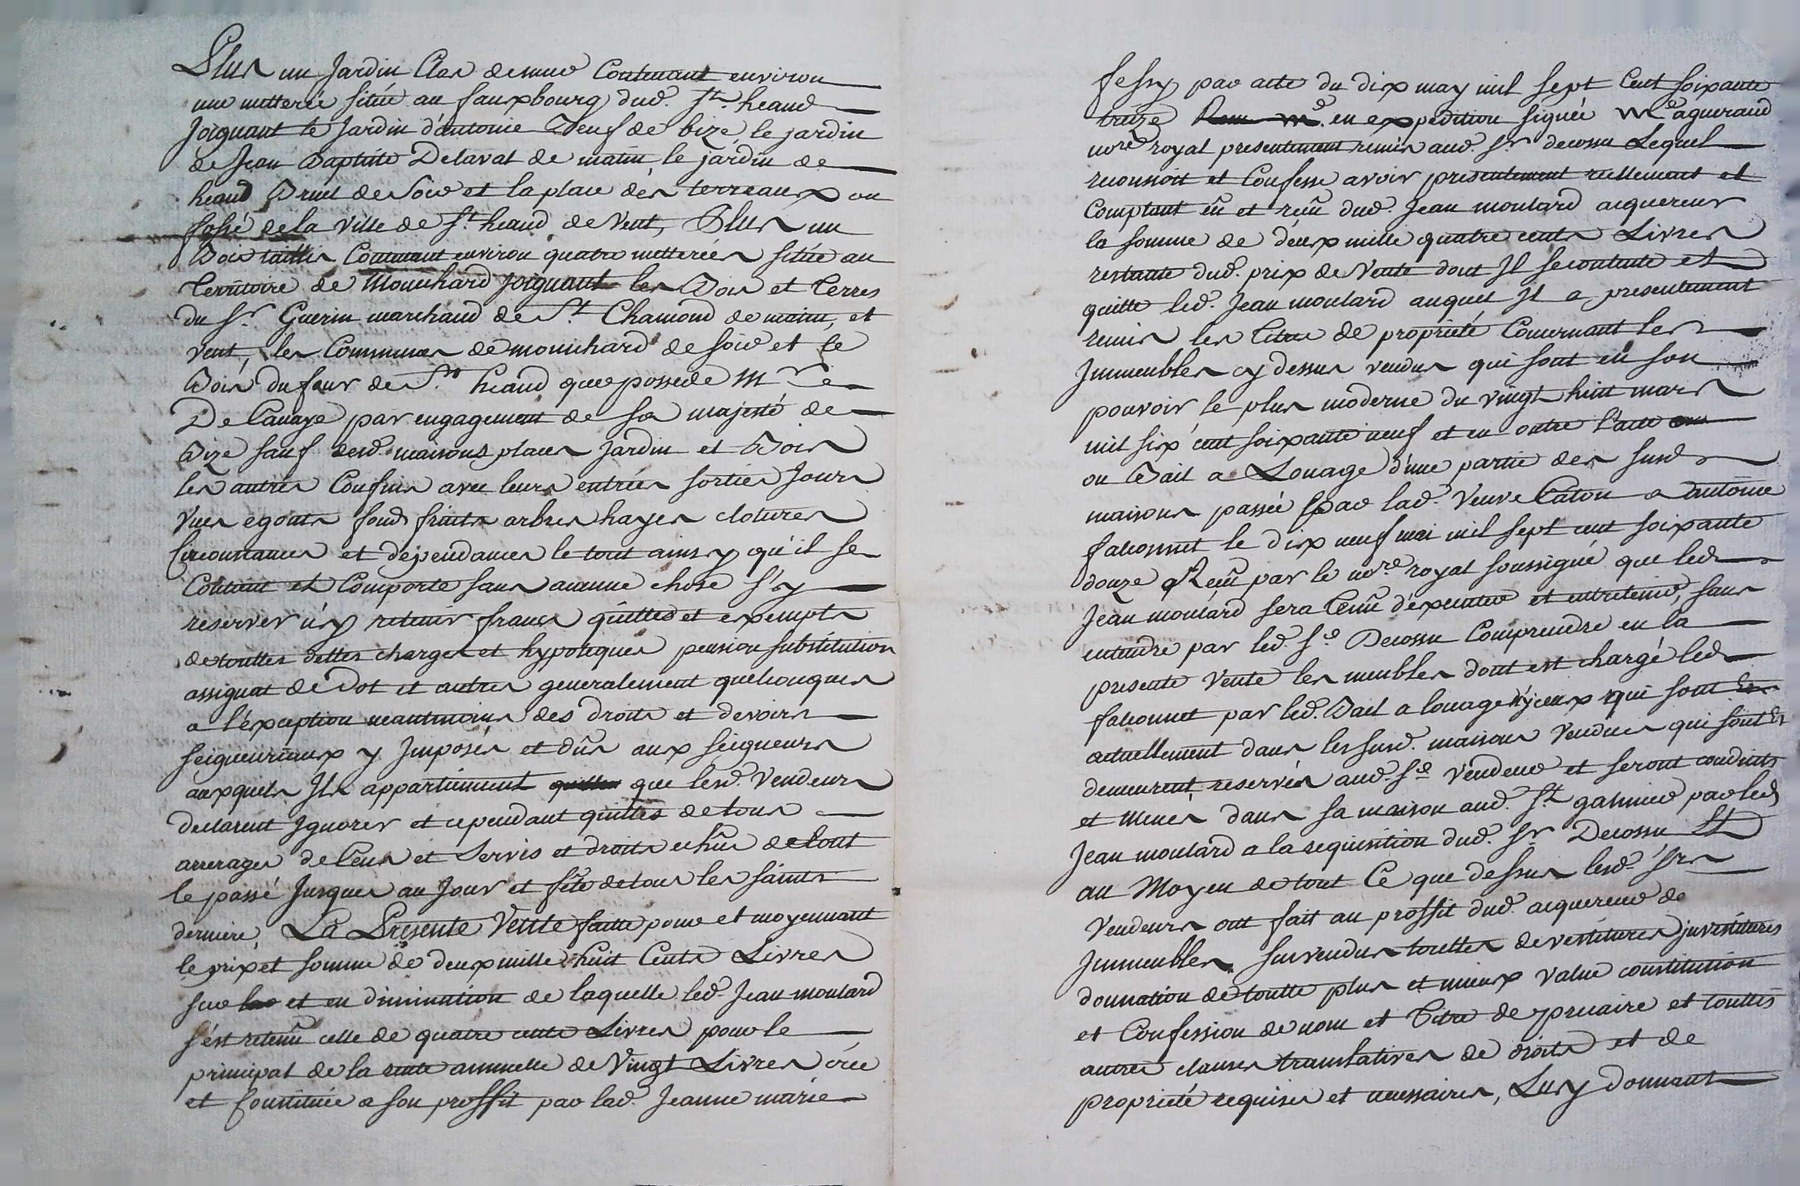 Plus un Jardin Clos de mur Contenant environ
une metterée sitüé au fauxbourg dud. St heand
Joignant le Jardin d'antoine Veuf de bize le jardin
de Jean Baptiste Delaval de matin le jardin de
heand Bruel de Soir et la place des terreaux ou
fossé de la ville de St heand de Vent, Plus un
Bois taillis Contenant environ quatre metterées sitüé au
Territoire de Mouchard joignant les Bois et Terres
du Sr. Guerin marchand de St Chamond de matin, et
vent, les Communes de mouchard de soir et le
Bois du four de St heand que possede Mr
De Lavaye par engagement de Sa majesté de
Bize sauf desd. maisons places Jardin et Bois
les autres Confins avec leurs entrées sorties Jours
Vues egouts fond fruits arbres hayes clotures
Circonstances et dependances le tout ainsy qu'il se
Contient et Comporte sans aucune chose s'y
reserver n'y retenir francs quittes et exempts
de touttes dettes charges et hypoteques pension substitution
assignat de Dot et autres generalement quelconques
a l'exception neantmoins des droits et devoirs
seigneuriaux y Imposés et dûs aux seigneurs
auxquels Ils appartiennent que lesd. Vendeurs
declarent Ignorer et cependant quittes de tous
arrerages de Cens et Servis et droits echus de tout
le passé Jusques au Jour et fête de tous les saints
derniere, La Presente Vente faitte pour et moyennant
le prix et somme de deux mille huit Cents Livres
sur et en diminution de laquelle led. Jean moulard
s'est retenû celle de quatre cents Livres pour le
principal de la rente annuelle de Vingt Livres crée
et Constituée a son proffit par lad. Jeanne marie
fessy par acte du dix may mil sept Cent soixante
treize en expedition signée Me aguiraud
nore royal presentement remis aud. Sr. decossu Lequel
reconnoit et Confesse avoir presentement reellement et
Comptant eû et reçû dud. Jean moulard acquereur
la somme de deux mille quatre cents Livres
restante dud. prix de Vente dont Il se contente et
quitte led. Jean moulard auquel Il a presentement
remis les titres de proprieté Concernant les
Immeubles cy dessus vendus qui sont en son
pouvoir le plus moderne du vingt huit mars
mil six cent soixante neuf et en outre l'acte
ou Bail a Louage d'une partie des susd.
maisons passée par lad. Veuve Caton a antoine
falconnet le dix neuf mai mil sept cent soixante
douze Reçû par le nore royal soussigné que led
Jean moulard sera tenû d'executer et entretenir, sans
entendre par led. Sr Decossu Comprendre en la
presente Vente les meubles dont est chargé led
falconnet par led. Bail a louage n'y ceux qui sont
actuellement dans les susd. maisons Vendues qui sont Et
demeurent reservés aud. Sr Vendeur et seront conduits
et menés dans sa maison aud. St galmier par led
Jean moulard a la requisition dud. Sr Decossu Et
au Moyen de tout Ce que dessus lesd. Srs
Vendeurs ont fait au proffit dud. acquereur de
Immeubles survendus touttes devestitures jnvestitures
donnation de toutte plus et mieux value constitution
et Confession de nom et titre de precaire et touttes
autres clauses translatives de droits et de
proprieté requises et necessaires, Luy donnant